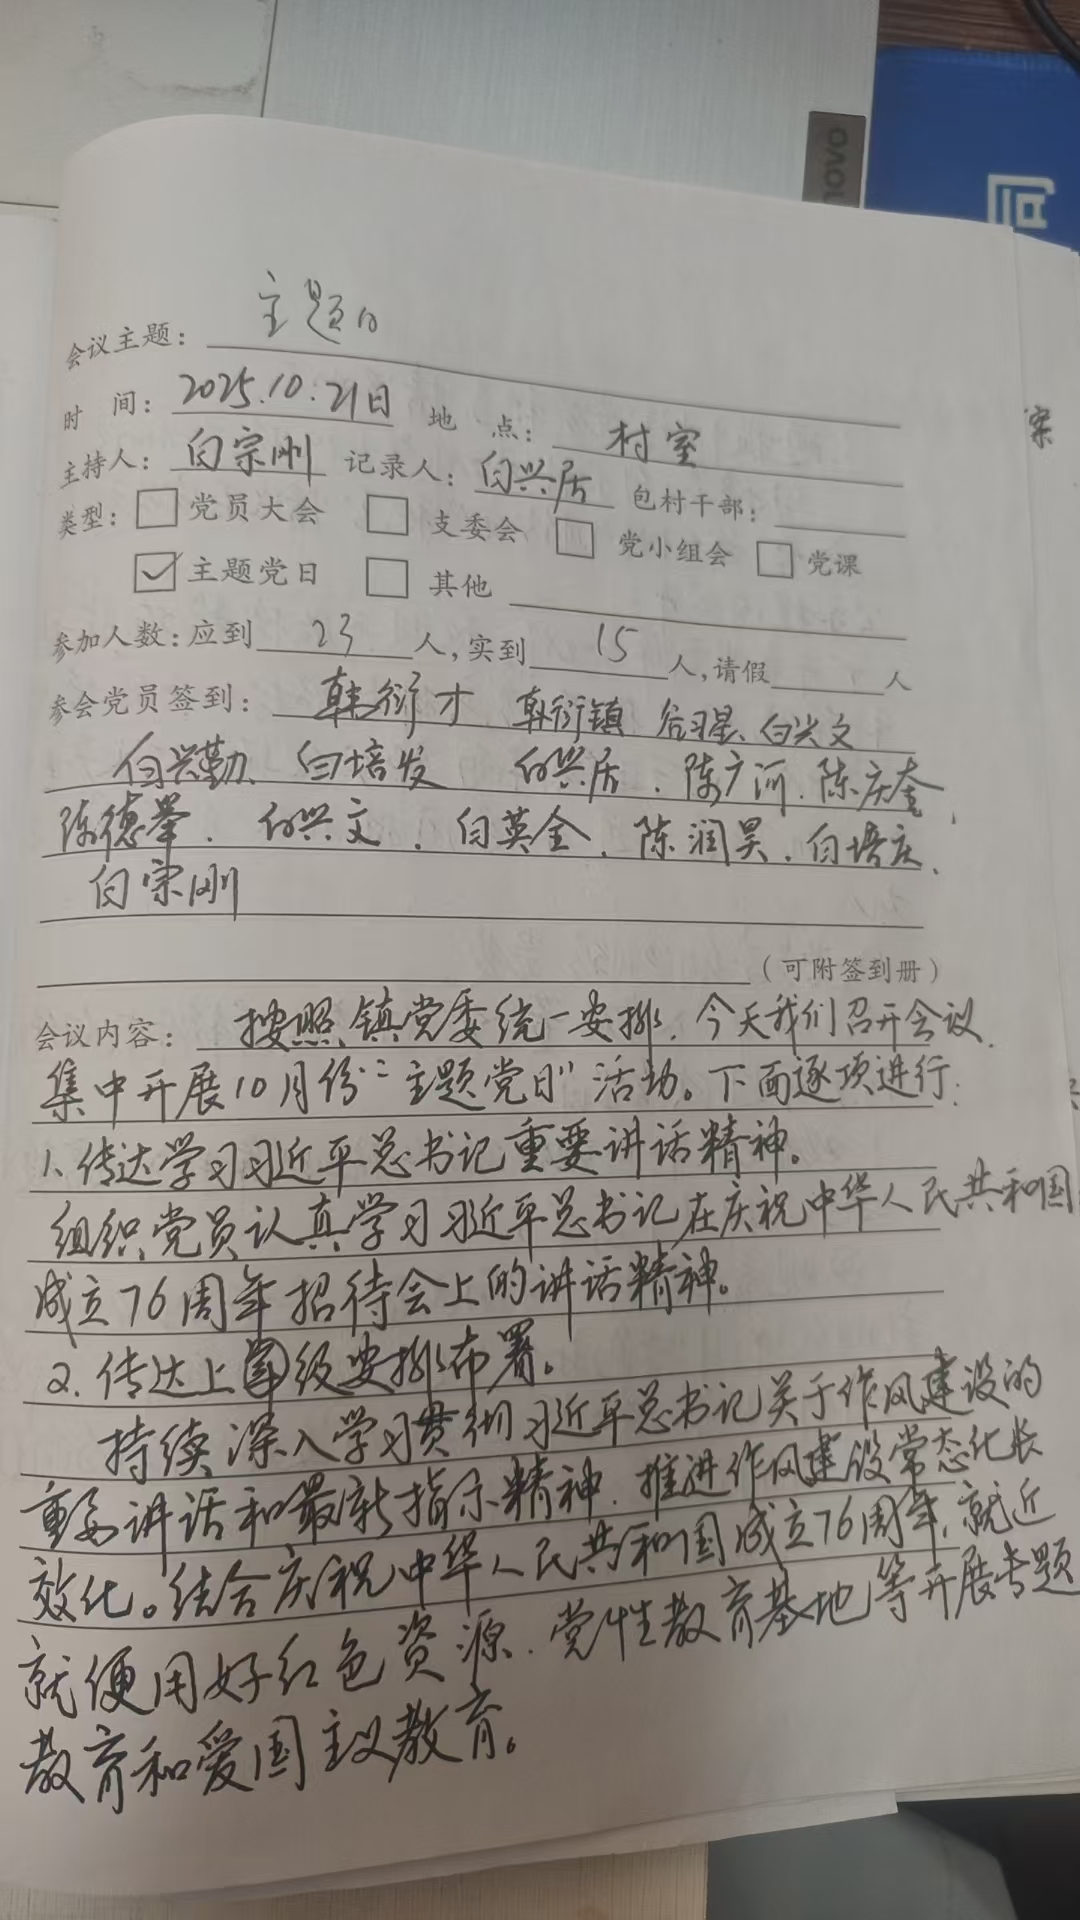 novo
司
会议主题: 主题日
时 间: 2025.10.21日 地 点: 村室
主持人: 白宗刚 记录人: 白兴居 包村干部:
类型: 党员大会 支委会 党小组会 党课
主题党日 其他
参加人数: 应到 23 人, 实到 15 人, 请假 人
参会党员签到: 韩衍才 韩衍镇 谷习星、白兴文
白兴勤、白培发 白兴居、陈广河、陈庆奎、
陈德举、白兴文、白英全、陈润昊、白培庆、
白宗刚
(可附签到册)
会议内容: 按照镇党委统一安排,今天我们召开会议,
集中开展10月份“主题党日”活动。下面逐项进行:
1、传达学习习近平总书记重要讲话精神。
组织党员认真学习习近平总书记在庆祝中华人民共和国
成立76周年招待会上的讲话精神。
2、传达上级安排布署。
持续深入学习贯彻习近平总书记关于作风建设的
重要讲话和最新指示精神,推进作风建设常态化长
效化。结合庆祝中华人民共和国成立76周年,就近
就便用好红色资源、党性教育基地等开展专题
教育和爱国主义教育。